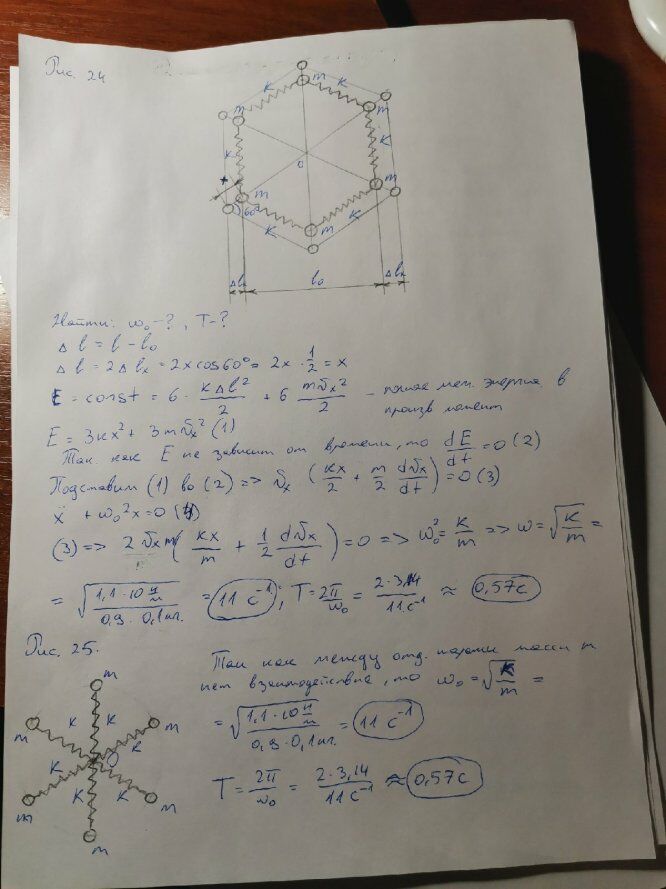 Рис. 24
K K
m m m
K K
O
x m m
60°
K m K
Δlx l₀ Δlx
Найти: ω₀-?, T-?
Δl = l - l₀
Δl = 2Δlx = 2x cos60° = 2x · 1/2 = x
E = const = 6 · kΔl²/2 + 6 mυx²/2 - полная мех. энергия в
произв момент
E = 3kx² + 3mυx² (1)
Так как E не зависит от времени, то dE/dt = 0 (2)
Подставим (1) во (2) => υx (kx/2 + m/2 dυx/dt) = 0 (3)
ẍ + ω₀²x = 0 (4)
(3) => 2υx m (kx/m + 1/2 dυx/dt) = 0 => ω₀² = k/m => ω = √(k/m) =
= √(1,1·10 Н/м / 0,9·0,1 кг.) = 11 с⁻¹; T = 2π/ω₀ = 2·3,14/11 с⁻¹ ≈ 0,57с
Рис. 25.
m
m K K m
K O K
m K K m
m
Так как между отд. парами массы m
нет взаимодействие, то ω₀ = √(k/m) =
= √(1,1·10 Н/м / 0,9·0,1 кг.) = 11 с⁻¹
T = 2π/ω₀ = 2·3,14/11 с⁻¹ ≈ 0,57с